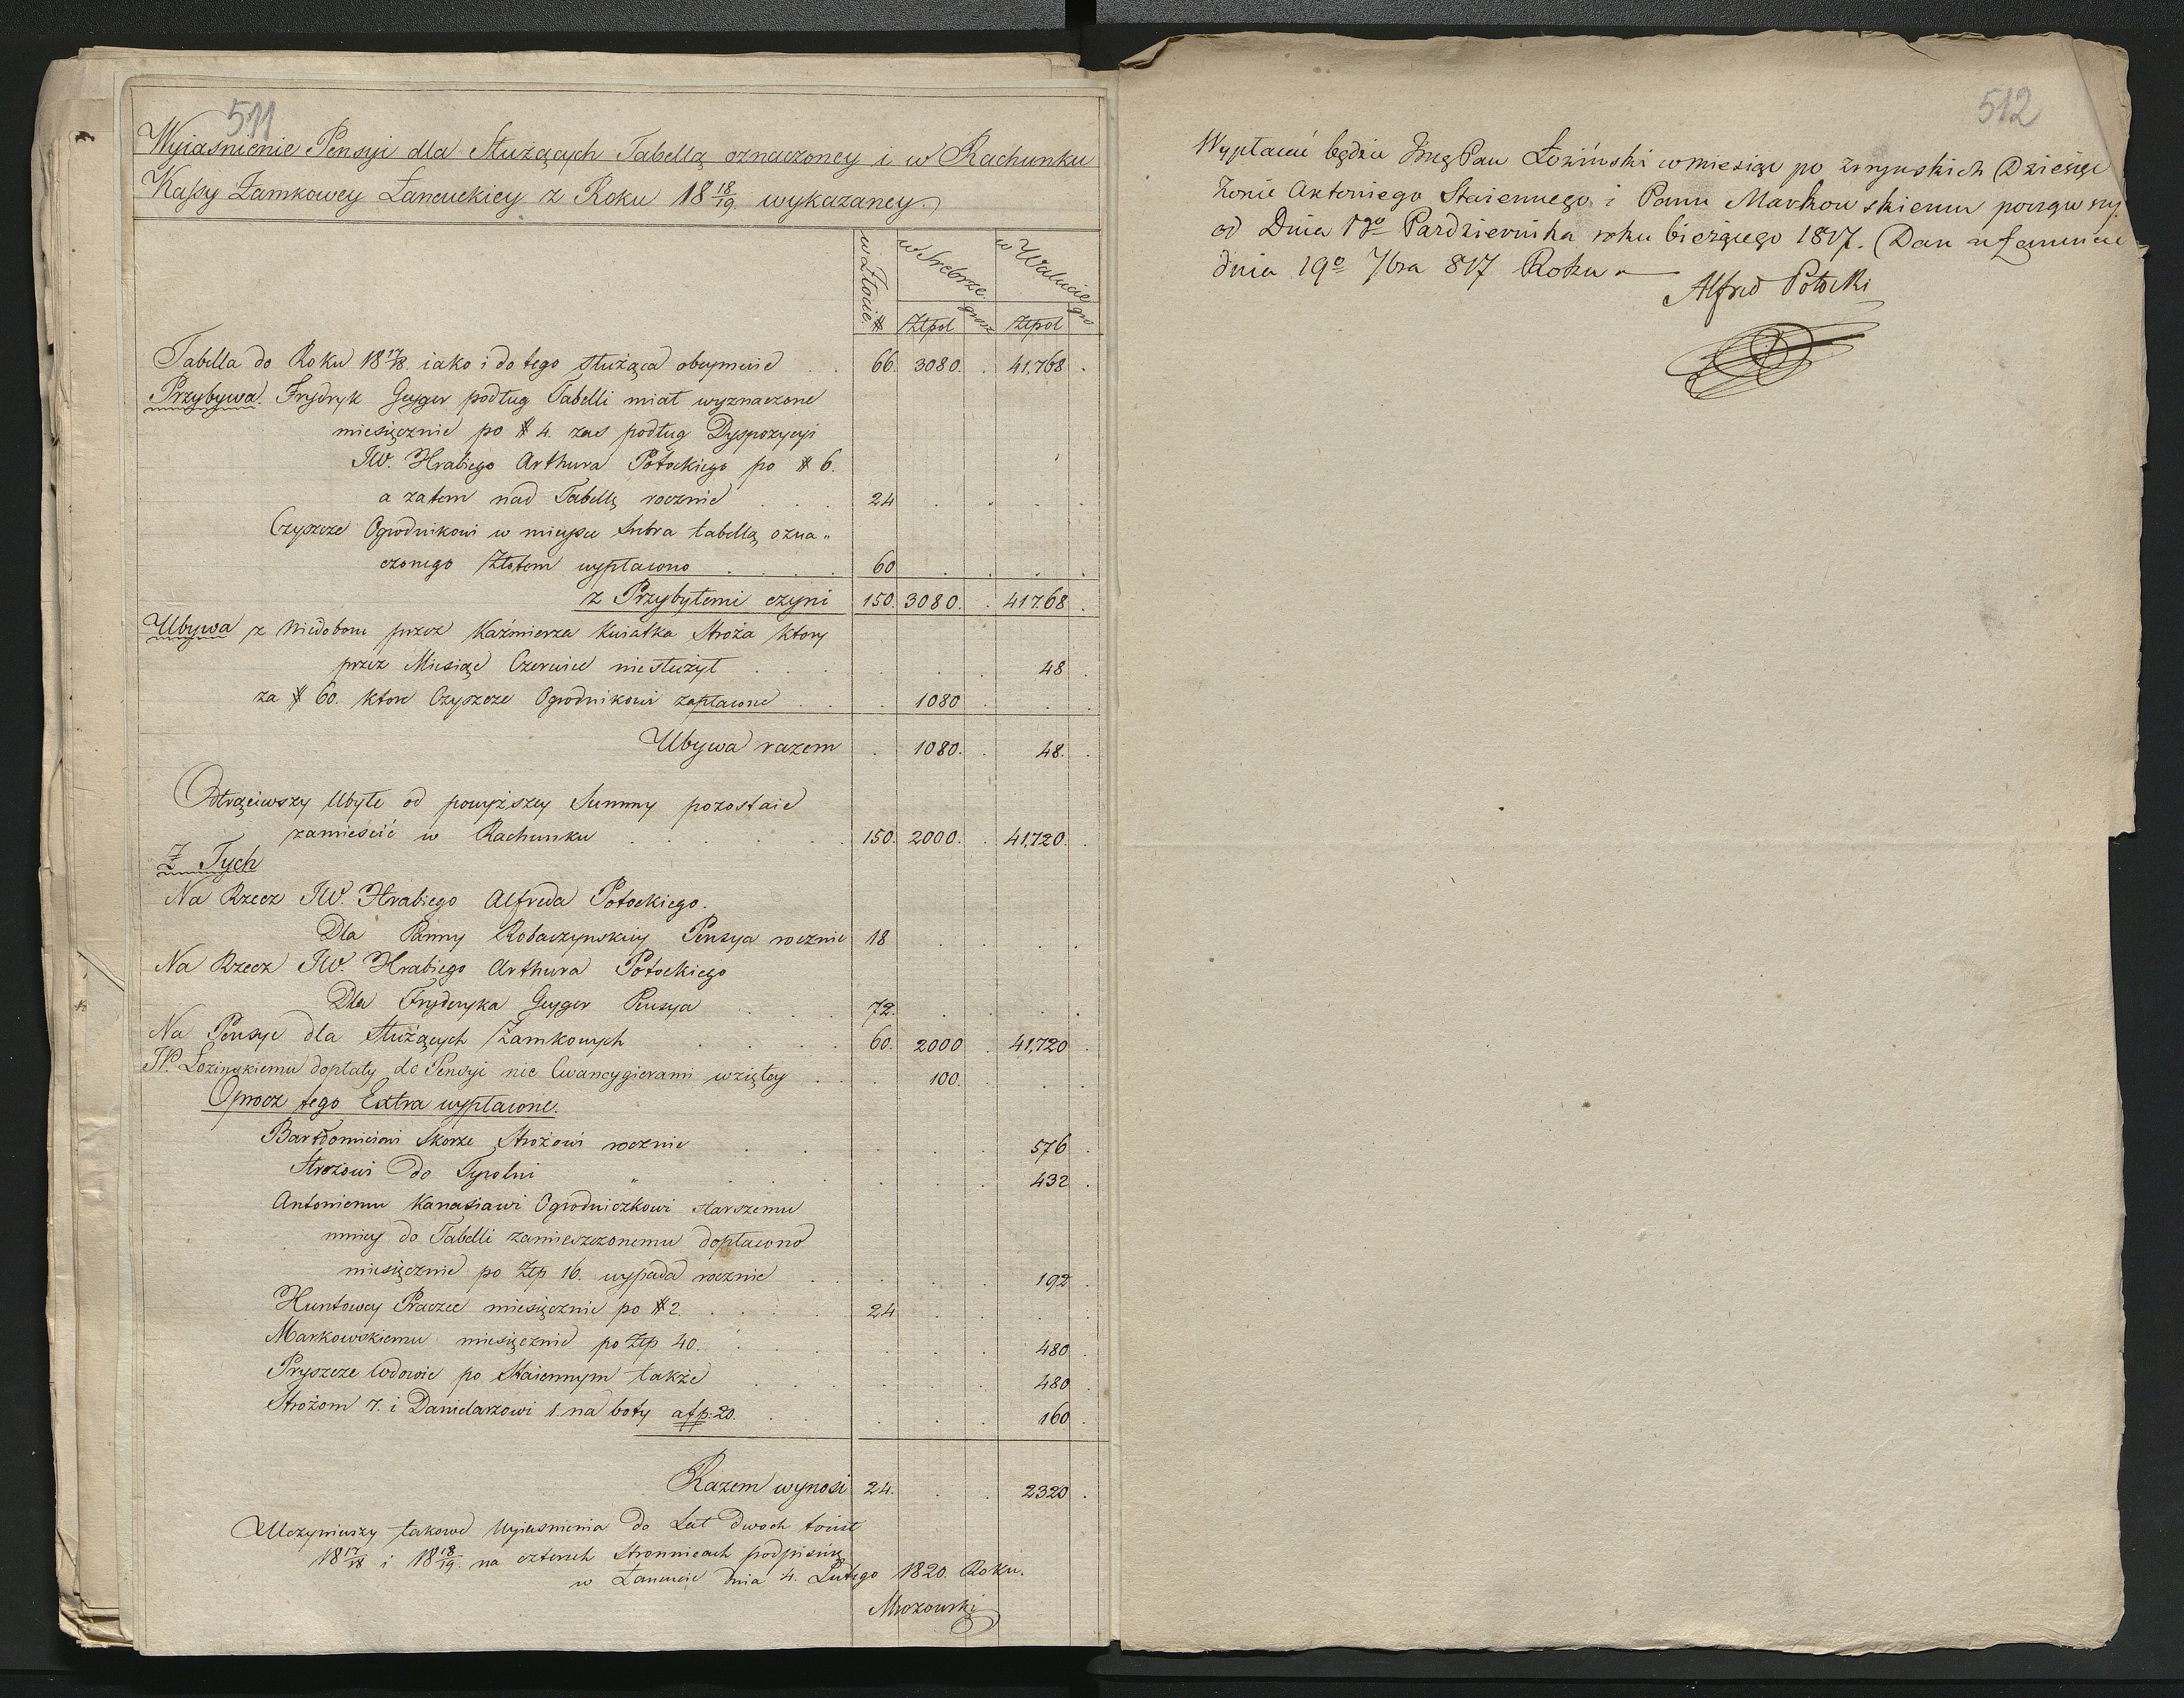 511
Wyiasnienie Pensyi dla Służących Tabellą oznaczoney i w Rachunku
Kassy Zamkowey Łancuckiey z Roku 18 18/19. wykazaney.
w Złocie. # w Srebrze Złpol grosz w Walucie Złpol gro
Tabella do Roku 18 17/18. iako i do tego służąca obeymuie . . 66. 3080. . 41,768 .
Przybywa. Frydryk Geyger podług Tabelli miał wyznaczone
miesięcznie po # 4. zas podług Dyspozycyi
JW. Hrabiego Arthura Potockiego po # 6.
a zatem nad Tabellę rocznie . . . 24 . . . .
Czyszcze Ogrodnikowi w mieysce Srebra tabellą ozna„
czonego Złotem wypłacono . . . . 60 . . . .
z Przybytemi czyni 150. 3080. . 41768 .
Ubywa z Niedoboru przez Kaźmierza Kwiatka Stroża ktory
przez Miesiąc Czerwiec niesłużył . . . . . 48 .
za # 60. ktore Czyszcze Ogrodnikowi zapłacone . . . 1080 . . .
Ubywa razem . 1080. . 48. .
Odtrąciwszy Ubyłe od powyższey Summy pozostaie
zamieścić w Rachunku . . . . 150. 2000. . 41,720. .
Z Tych
Na Rzecz JW. Hrabiego Alfreda Potockiego.
Dla Panny Robaczynskiey Pensya rocznie 18 . . . .
Na Rzecz JW. Hrabiego Arthura Potockiego
Dla Fryderyka Geyger Pensya . . . 72. . . . .
Na Pensye dla Służących Zamkowych . . . 60. 2000 . 41,720 .
JP. Lozinskiemu dopłaty do Pensyi nie Cwancygierami wziętey . . 100. . . .
Oprocz tego Extra wypłacone.
Bartłomieiowi Skorze Strożowi rocznie . . . . . 576 .
Strożowi do Tyrolni „ . . . . . 432 .
Antoniemu Kanasiawi Ogrodniczkowi starszemu
mniey do Tabelli zamieszczonemu dopłacono
miesięcznie po Złp 16. wypada rocznie . . . . . 192 .
Huntowey Praczce miesięcznie po # 2. . . . 24 . . . .
Markowskiemu miesięcznie po Złp 40. . . . . . 480 .
Pryszcze Wdowie po Staiennym także . . . . . 480 .
Strożom 7. i Danielarzowi 1. na boty a fp: 20. . . . . . 160 .
Razem wynosi 24. . . 2320 .
Uczyniwszy takowe Wyiasnienia do Lat dwoch toiest
18 17/18 i 18 18/19. na czterech Stronnicach podpisuię
w Łancucie dnia 4. Lutego 1820. Roku.
Mrozowski
512
Wypłacać będzie Łoziński w miesiąc po Dziesięć
Żonie Antoniego Staiennego i Panu Markowskiemu
od Dnia 1go Pazdziernika roku bieżącego 1817. Dan w Łancucie
dnia 19o 7bra 817 Roku
Alfred Potocki